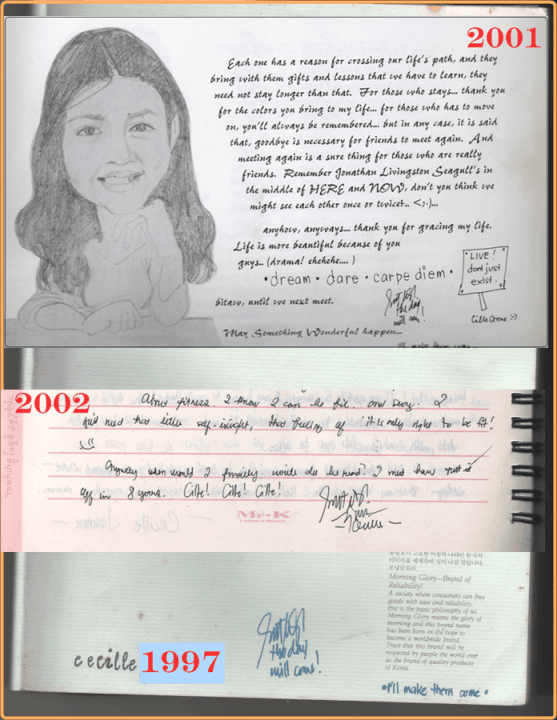 2001
Each one has a reason for crossing our life's path, and they
bring with them gifts and lessons that we have to learn, they
need not stay longer than that. For those who stays... thank you
for the colors you bring to my life... for those who has to move
on, you'll always be remembered... but in any case, it is said
that, goodbye is necessary for friends to meet again. And
meeting again is a sure thing for those who are really
friends. Remember Jonathan Livingston Seagull's in
the middle of HERE and NOW, don't you think we
might see each other once or twice?.. <;-)...
anyhow, anyways... thank you for gracing my life.
Life is more beautiful because of you
guys.. (drama! ehehehe.... )
• dream • dare • carpe diem •
LIVE!
dont just
exist.
bitaw, until we next meet.
the day
will come!
Cille Anne :-)
May Something Wonderful happen...
'll make them come
2002
About fitness. I know I can be fit. and sexy. I
just need that little self-insight, that feeling of it is only right to be fit!
Anyway when would I finally write
in 8 years. Cille! Cille! Cille!
Mr.K
Morning Glory—Brand of
Reliability!
A society where consumers can buy
goods with ease and reliability,
this is the basic philosophy of us.
Morning Glory means the glory of
morning and this brand name
has been born in the hope to
become a worldwide brand.
Trust that this brand will be
respected by people the world over
as the brand of quality products
of Korea.
cecille 1997
the day
will come!
•I'll make them come •